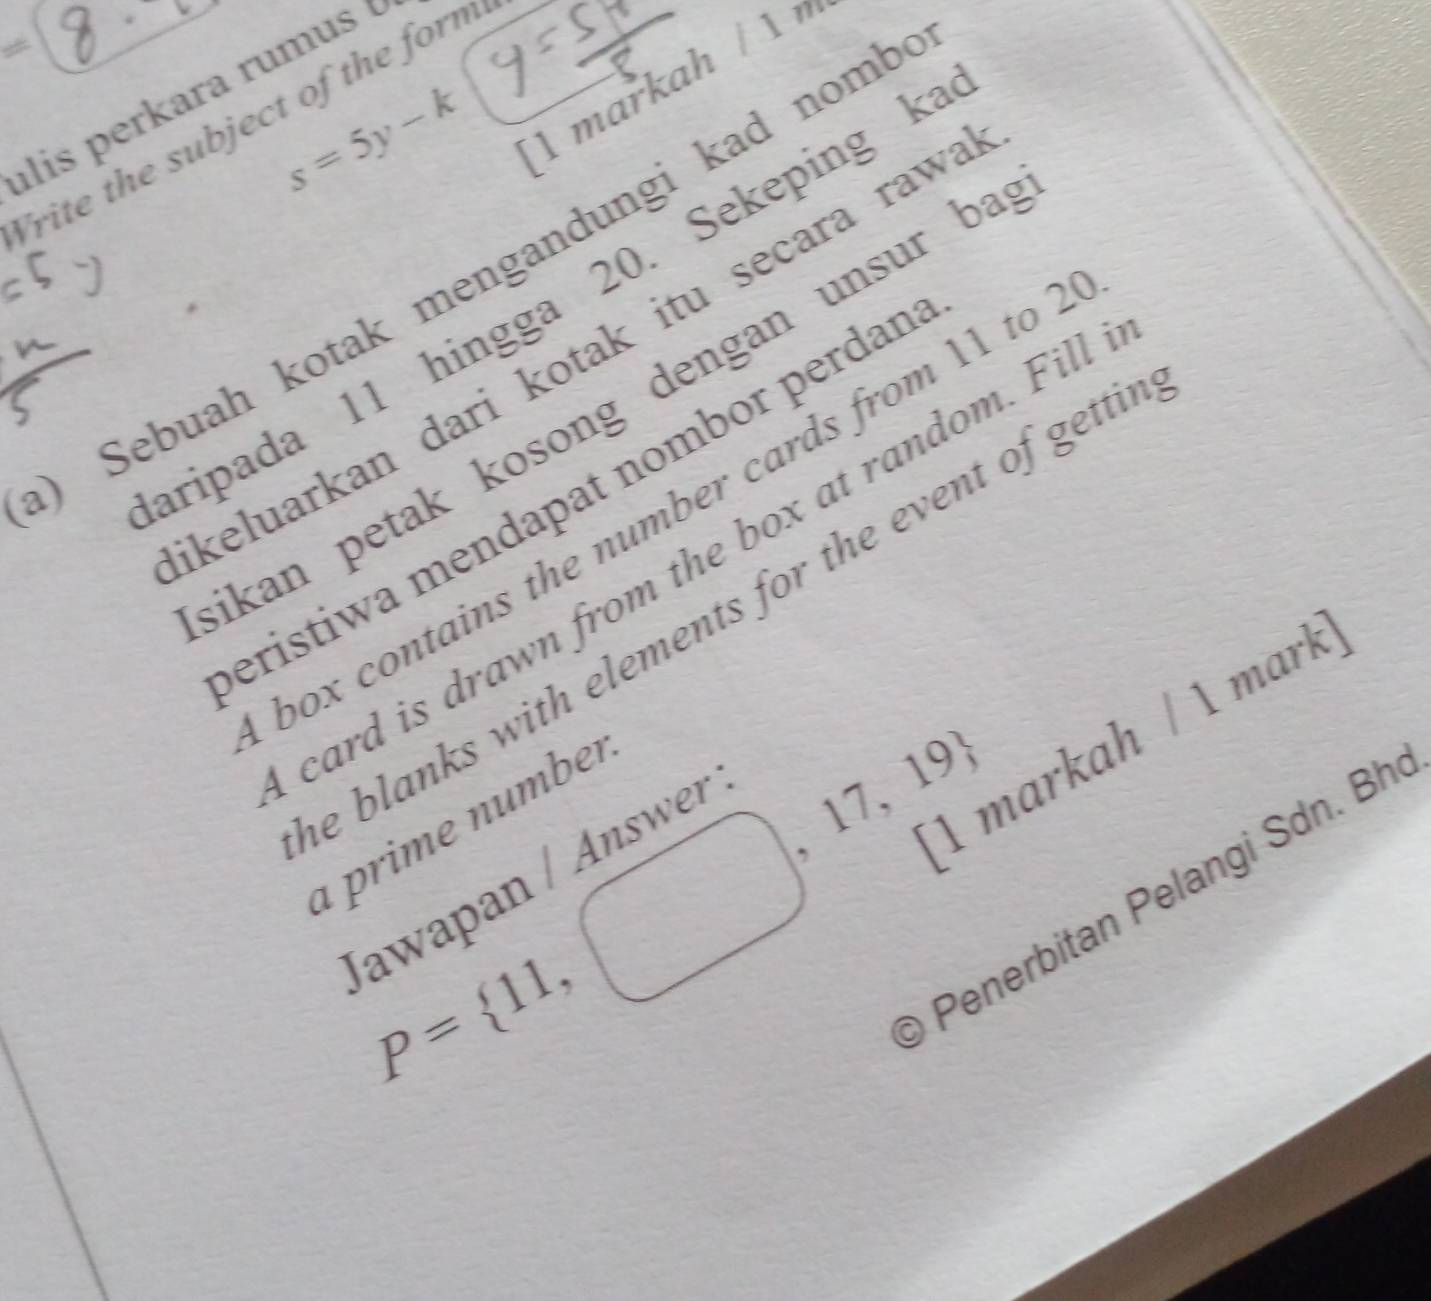 = 8.
ulis perkara rumus
Write the subject of the formu
s = 5y – k
y =
[1 markah / 1 m
= 5 y
5
(a) Sebuah kotak mengandungi kad nombor
daripada 11 hingga 20. Sekeping kad
dikeluarkan dari kotak itu secara rawak.
Isikan petak kosong dengan unsur bagi
peristiwa mendapat nombor perdana.
A box contains the number cards from 11 to 20.
A card is drawn from the box at random. Fill in
the blanks with elements for the event of getting
a prime number.
Jawapan / Answer :
P = {11, , 17, 19}
[1 markah / 1 mark]
© Penerbitan Pelangi Sdn. Bhd.